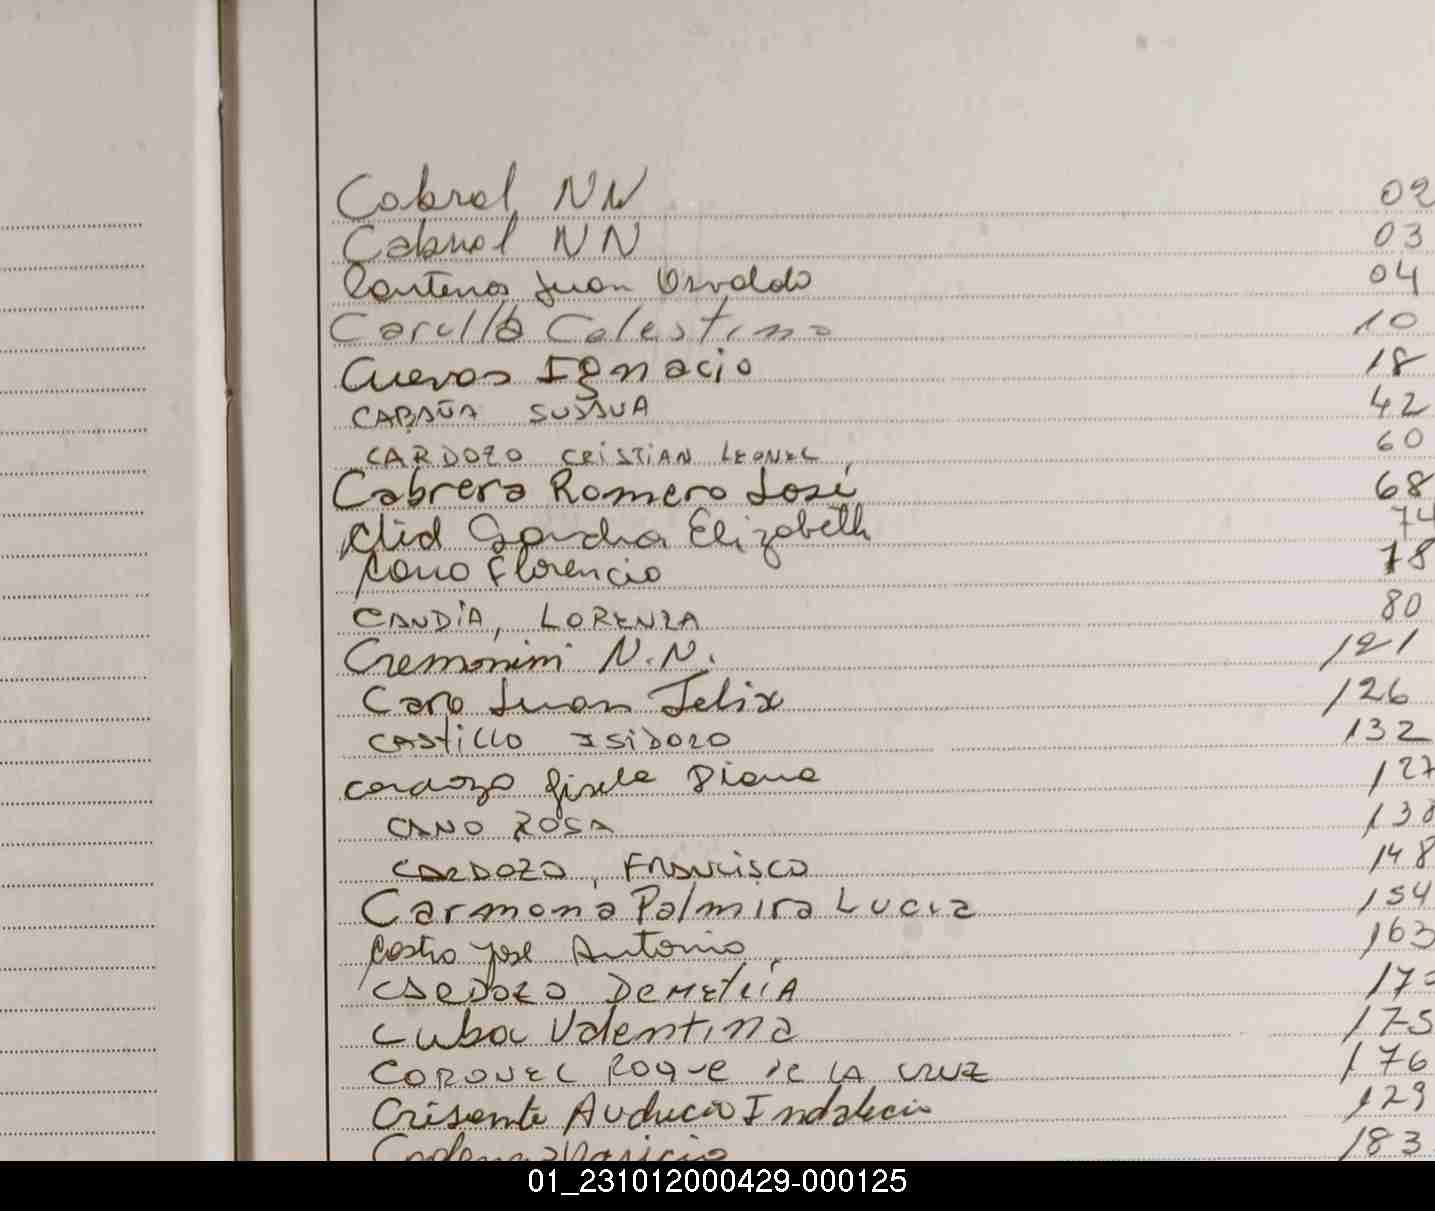 Cabral NN 02
Cabral NN 03
Juan Osvaldo 04
Carillo Celestino 10
Cuevas Ignacio 18
CABAÑA 42
CARDOZO CRISTIAN LEONEL, 60
Cabrera Romero José 68
Elizabeth 74
Cano Florencio 78
CANDIA, LORENZA 80
Cremonini N.N. 121
Caro Juan Felix 126
CASTILLO ISIDORO 132
Cardozo Gisela Diana 127
CANO ROSA 138
CARDOZO, FRANCISCO 148
Carmona Palmira Lucia 154
Castro José Antonio 163
CARDOZO DEMETRIA
Cuba Valentina 175
CORONEL ROQUE DE LA CRUZ 176
Indalecio 129
183
01_231012000429-000125